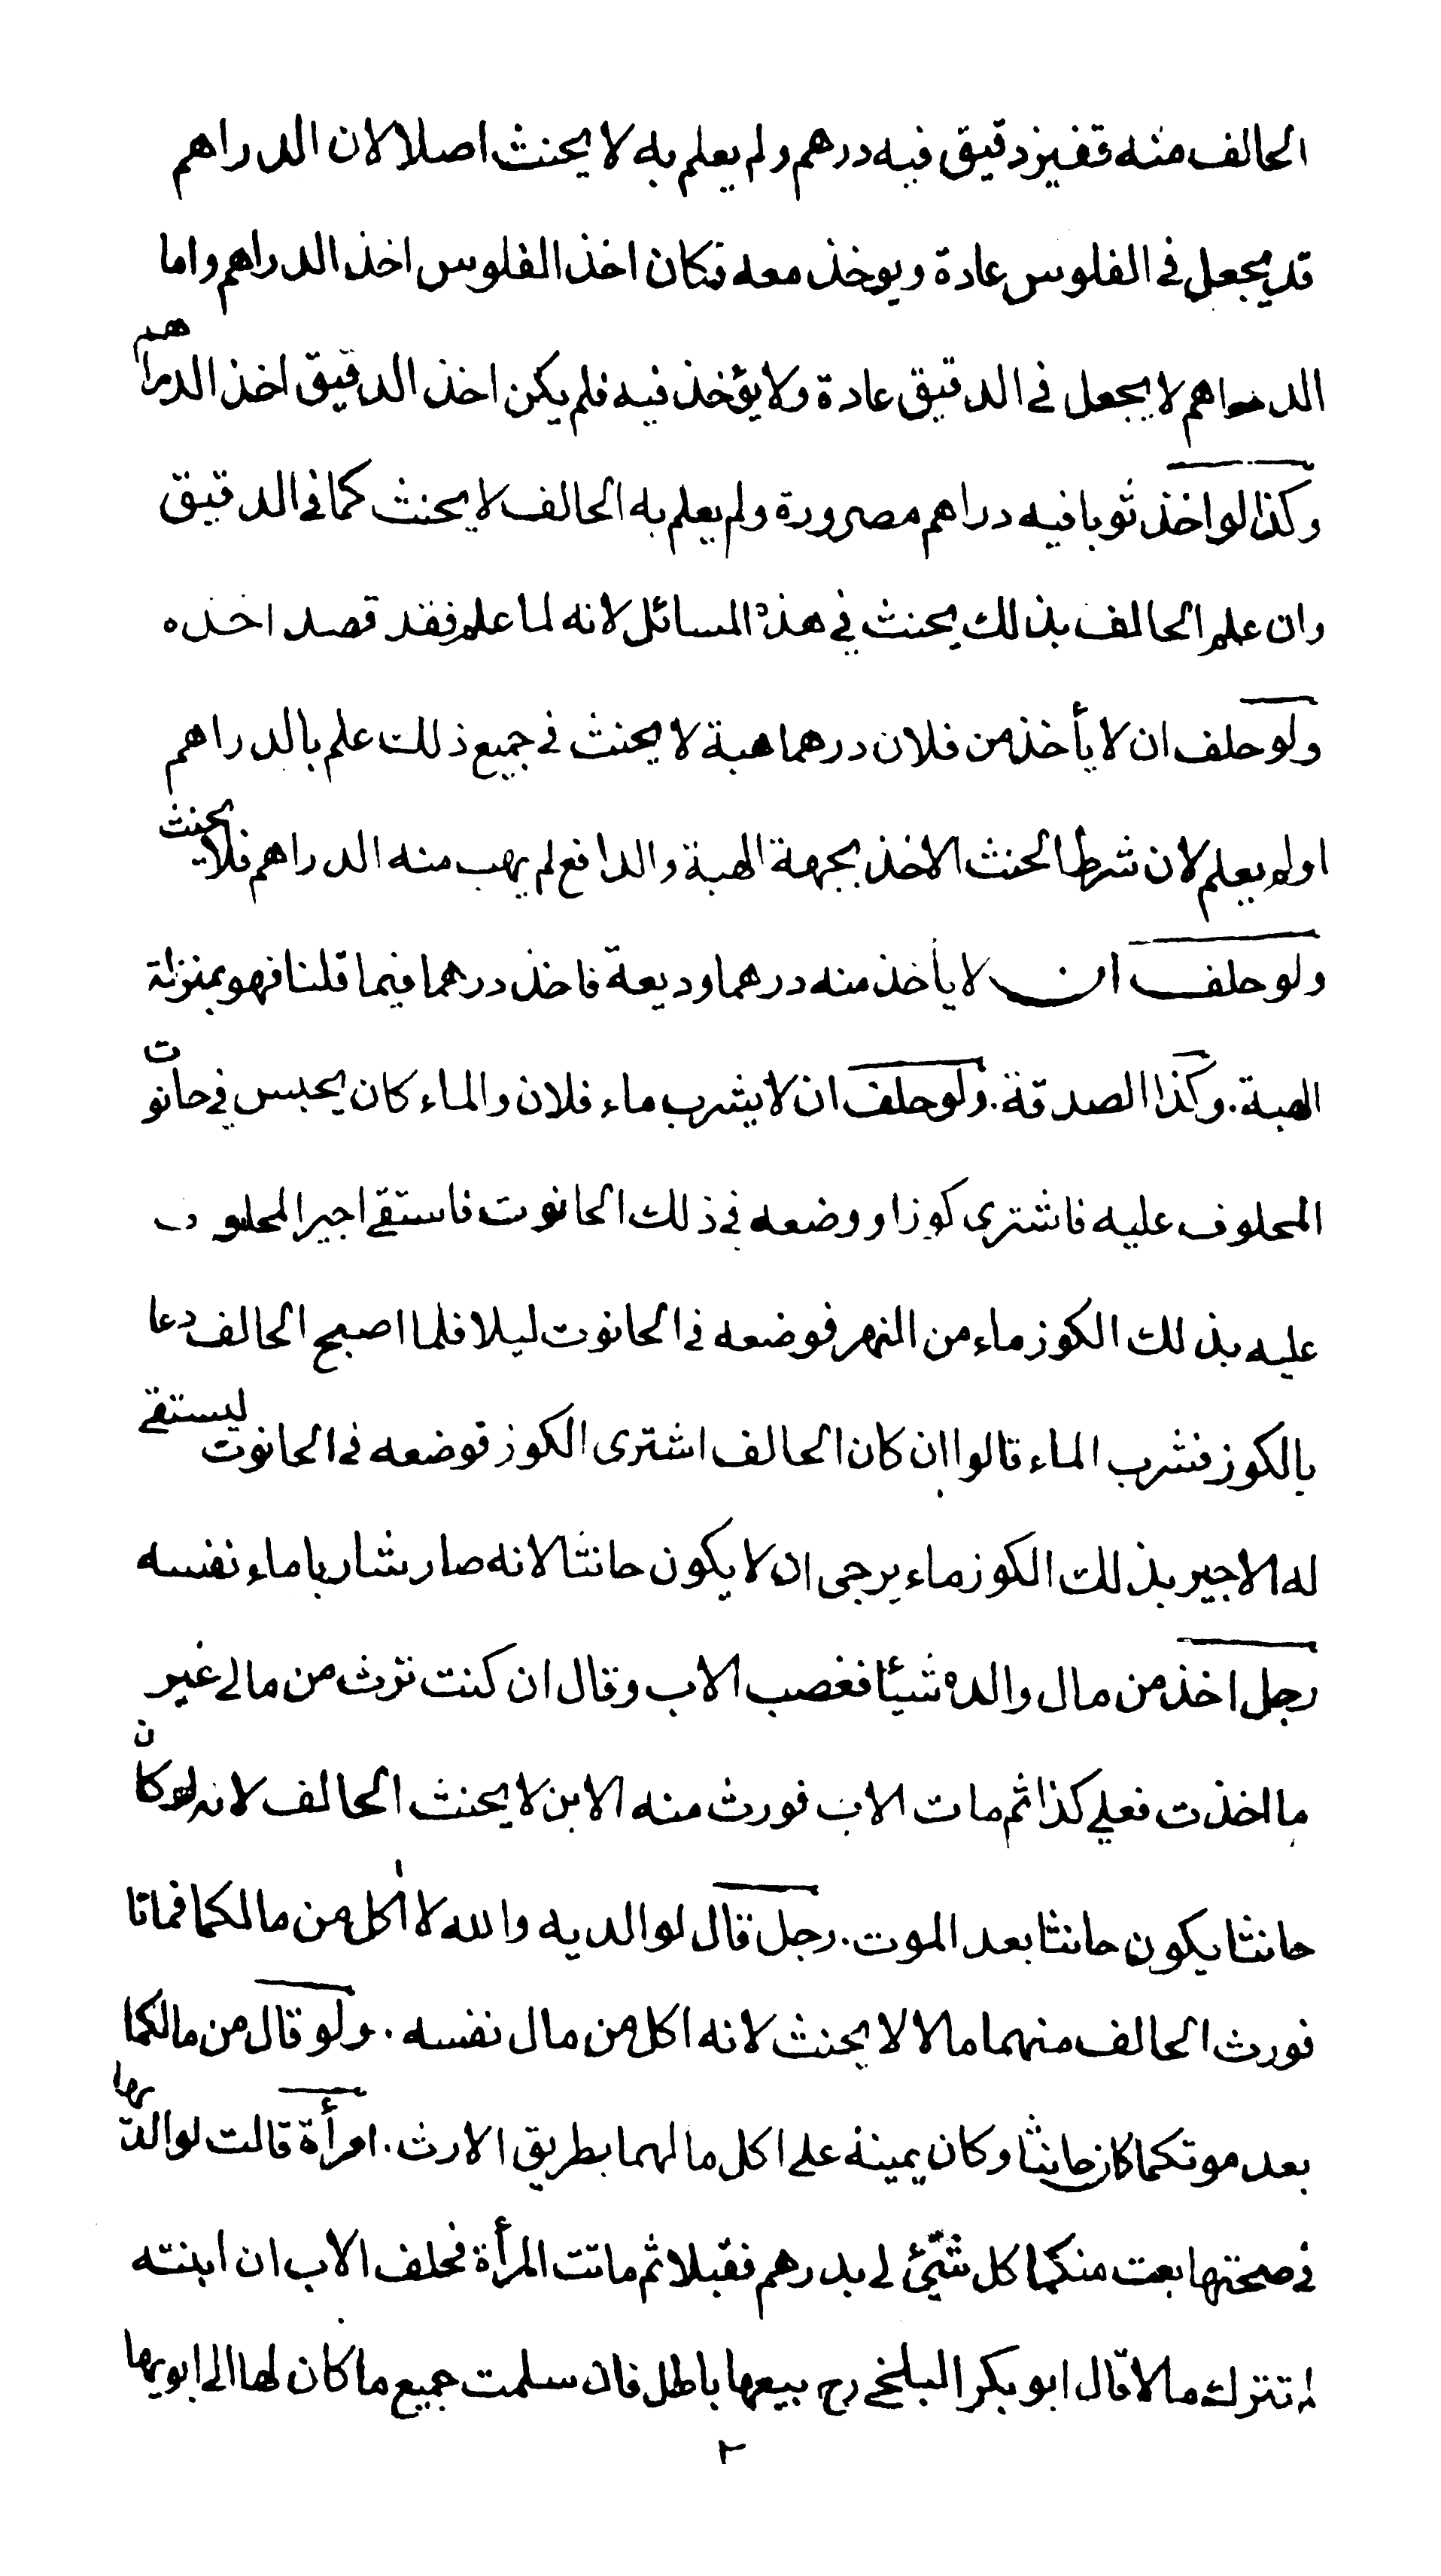 الحالف منه قفيز دقيق فيه درهم ولم يعلم به لا يحنث اصلا لان الدراهم
قد يجعل في الفلوس عادة ويوخذ معه فكان اخذ الفلوس اخذ الدراهم واما
الدراهم لا يجعل في الدقيق عادة ولا يؤخذ فيه فلم يكن اخذ الدقيق اخذ الدراهم
وكذا لو اخذ ثوبا فيه دراهم مصرورة ولم يعلم به الحالف لا يحنث كما في الدقيق
وان علم الحالف بذلك يحنث في هذه المسائل لانه لما علم فقد قصد اخذه
ولو حلف ان لا يأخذ من فلان درهما هبة لا يحنث في جميع ذلك علم بالدراهم
اولم يعلم لان شرط الحنث الاخذ بجهة الهبة والدافع لم يهب منه الدراهم فلا يحنث
ولو حلف ان لا يأخذ منه درهما وديعة فاخذ درهما فيما قلنا فهو بمنزلة
الهبة. وكذا الصدقة. ولو حلف ان لا يشرب ماء فلان والماء كان يحبس في حانوت
المحلوف عليه فاشترى كوزا ووضعه في ذلك الحانوت فاستقى اجير المحلوف
عليه بذلك الكوز ماء من النهر فوضعه في الحانوت ليلا فلما اصبح الحالف دعا
بالكوز فشرب الماء قالوا ان كان الحالف اشترى الكوز فوضعه في الحانوت ليستقي
له الاجير بذلك الكوز ماء يرجى ان لا يكون حانثا لانه صار شاربا ماء نفسه
رجل اخذ من مال والده شيئا فغصب الاب وقال ان كنت ترث من مالي غير
ما اخذت فعلي كذا ثم مات الاب فورث منه الابن لا يحنث الحالف لانه لو كان
حانثا يكون حانثا بعد الموت. رجل قال لوالديه والله لا اٰكل من مالكما فماتا
فورث الحالف منهما مالا لا يحنث لانه اكل من مال نفسه. ولو قال من مالكما
بعد موتكما كان حانثا وكان يمينه على اكل مالهما بطريق الارث. امرأة قالت لوالديها
في صحتها بعت منكما كل شيئ لي بدرهم فقبلا ثم ماتت المرأة فحلف الاب ان ابنته
لم تترك مالا قال ابو بكر البلخي رح بيعها باطل فان سلمت جميع ما كان لها الى ابويها
٢